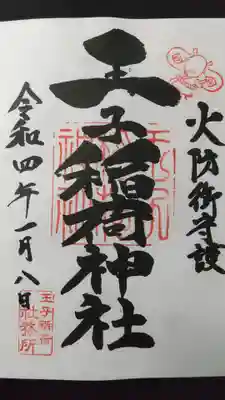 火防御守護
王子稲荷神社
令和四年一月八日
王子稲荷
社務所